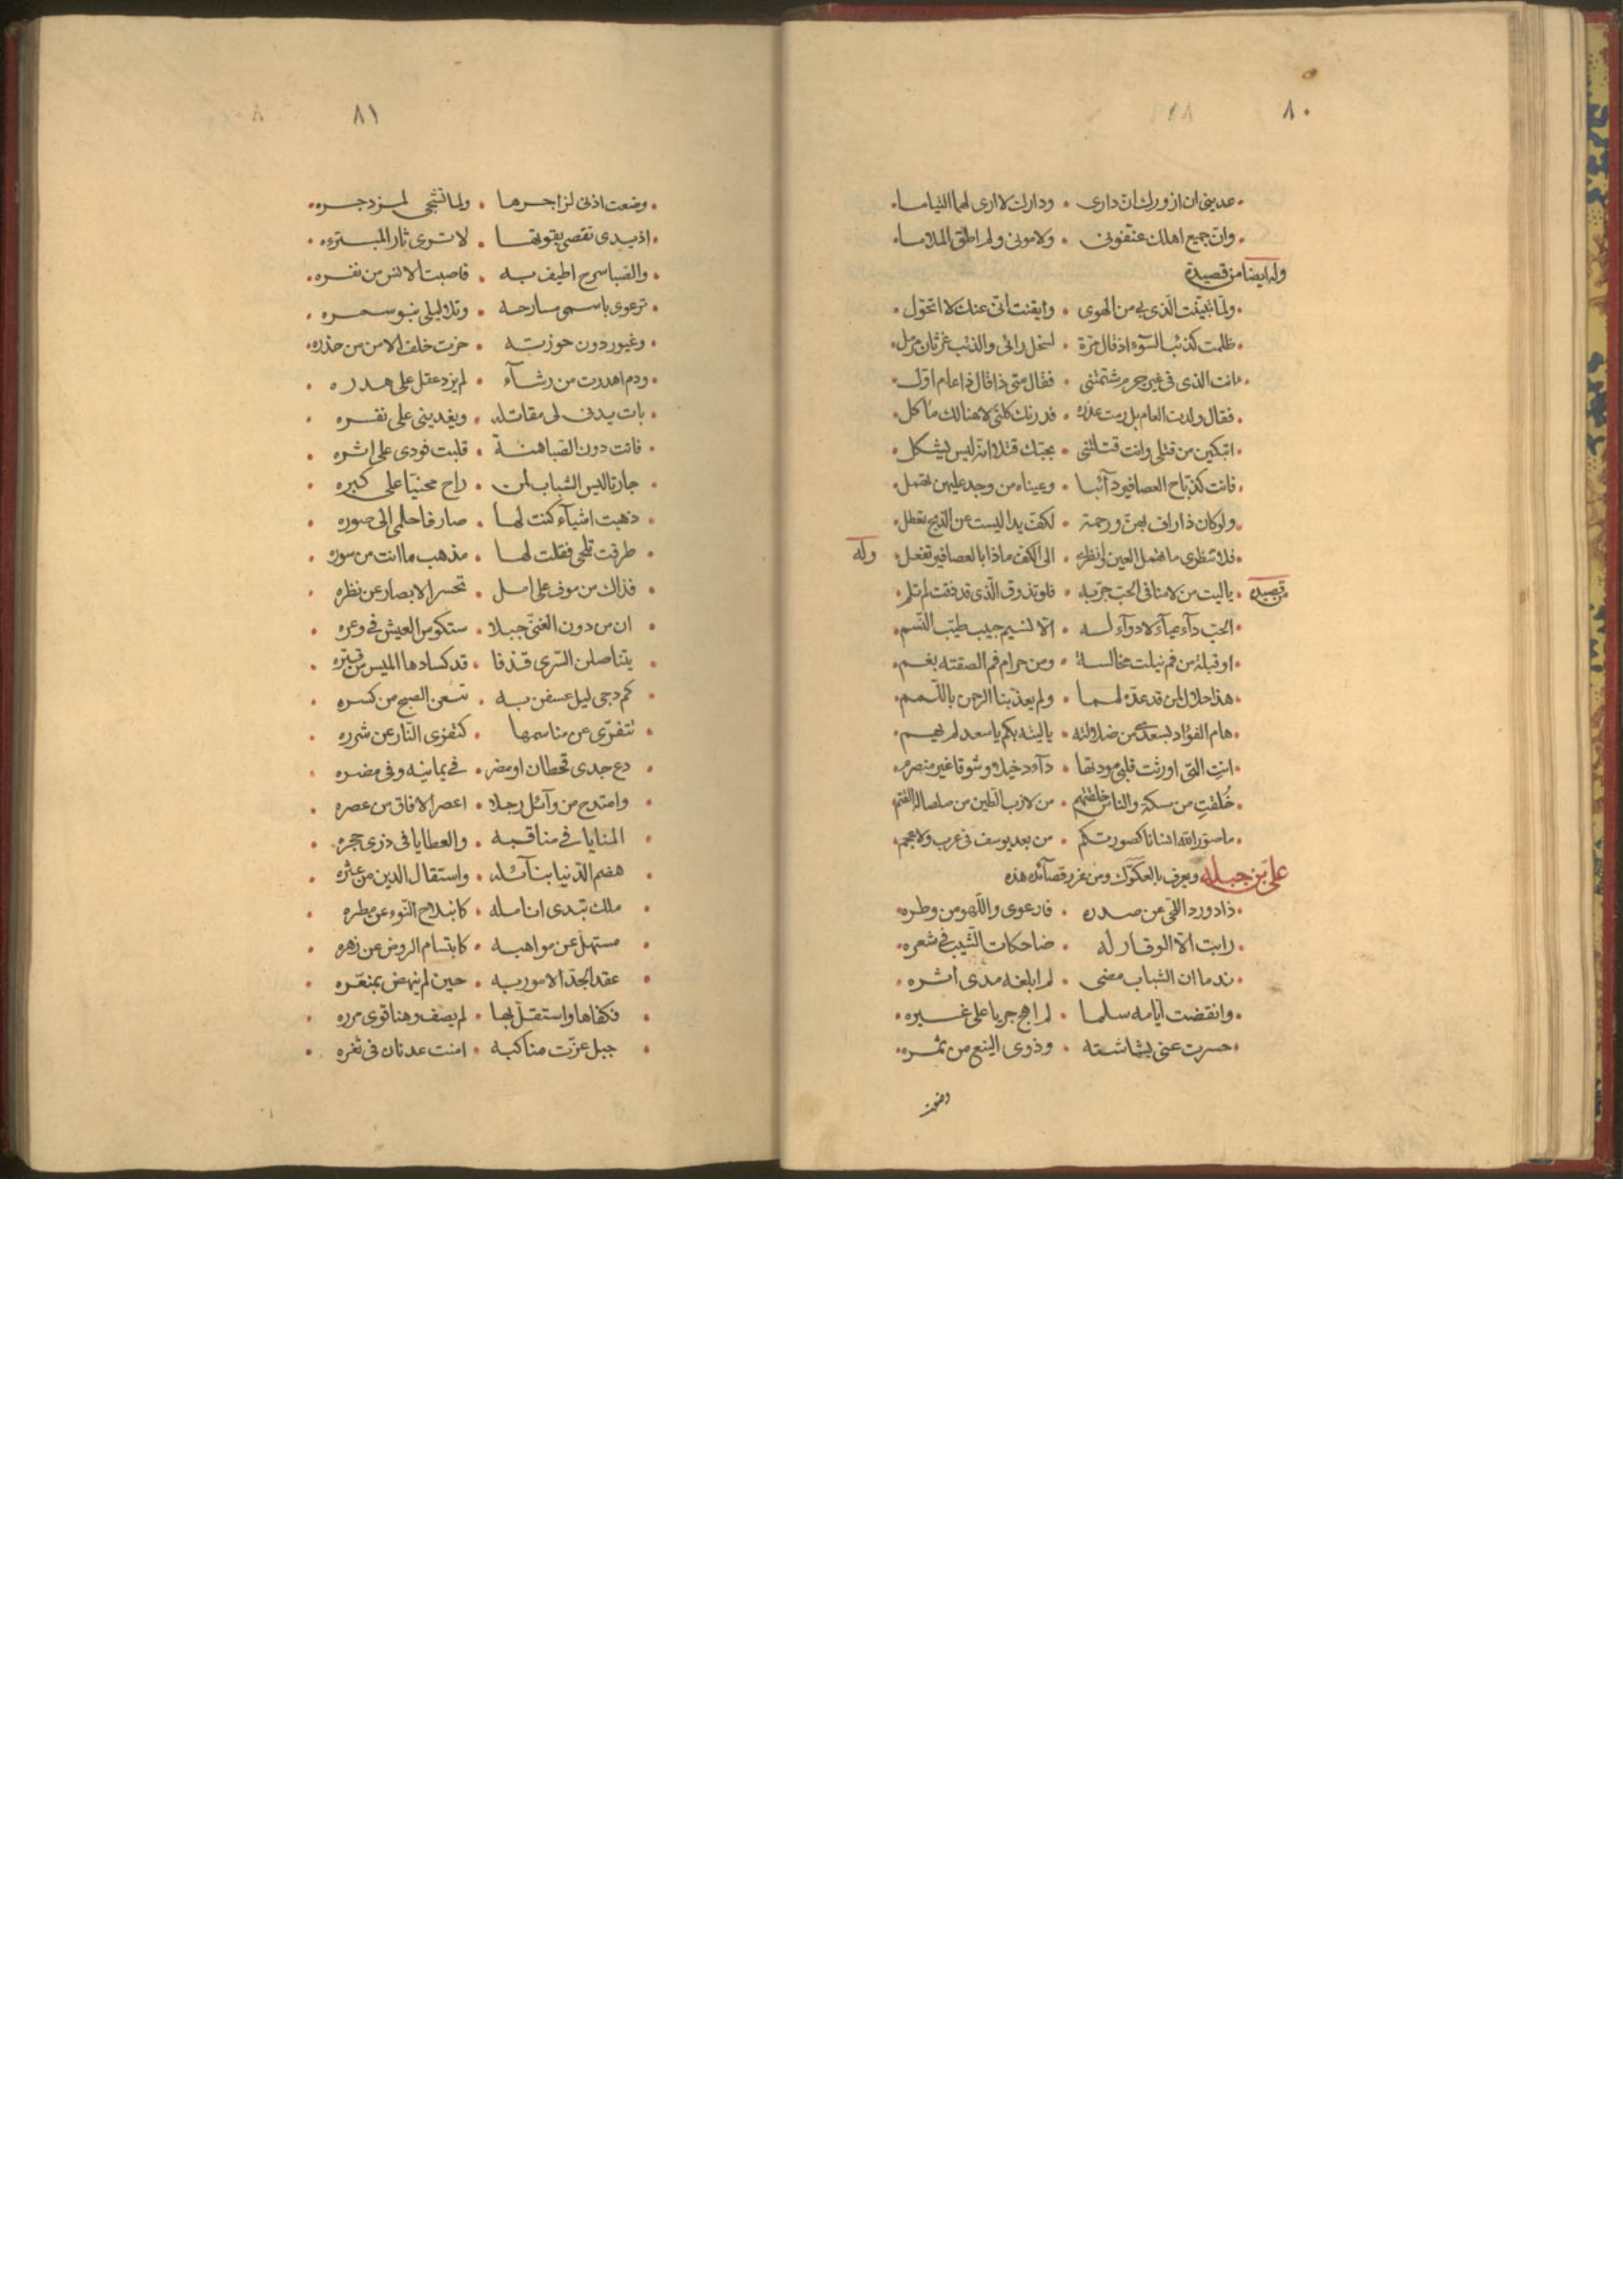 ٨٠
عديني ان ازورك ان داري • ودارك لا ارى لهما التياما
وان جميع اهلك عنفوني • ولاموني ولم اطق الملاما
وله ايضا من قصيدة
ولما تبينت الذي بي من الهوى • وايقنت اني عنك لا اتحول
ظلمت كذئب السوء اذ قال مرة • لسخل راى والذئب غرثان مرمل
ءانت الذي في غير جرم شتمتني • فقال متى ذا قال ذا عام اول
فقال ولدت العام بل رمت غدرة • فدونك كلني لا هنالك ماكل
اتبكين من قتلي وانت قتلتني • بحبك قتلا انه ليس يشكل
فانت كذباح العصافير دآئبا • وعيناه من وجد عليهن تهمل
ولو كان ذا رافه بهن ورحمة • لكف يدا ليست عن الذبح تعطل
فلا تنظري ما تهمل العين وانظري • الى الكف ماذا بالعصافير تفعل وله
من قصيدة • ياليت من لامنا في الحب جربه • فلو تذوق الذي قد ذقت لم تلم
الحب دآء عيآء لا دوآء له • الا نسيم حبيب طيب النسم
او قبلة من فم نيلت مخالسة • ومن حرام فم الصقته بفم
هذا حلال لمن قد عده لمما • ولم يعذبنا الرحمن باللمم
هام الفؤاد بسعدى من ضلالته • ياليته بكم يا سعد لم يهم
انت التي اورثت قلبي مودتها • دآء دخيلا وشوقا غير منصرم
خُلقتِ من مسكة والناس خلقتهم • من لازب الطين من صلصاله الفتم
ما صور الله انسانا كصورتكم • من بعد يوسف في عرب ولا عجم
علي بن جبلة ويعرف بالعكوّك ومن غرر قصآئده هذه
ذاد ورد الغي عن صدره • فارعوى واللهو من وطره
رابت الا الوقار له • ضاحكات الشيب في شعره
ندما ان الشباب مضى • لم ابلغه مدى اشره
وانقضت ايامه سلما • لم اهج حربا على غيره
حسرت عني بشاشته • وذوى الينع من ثمره
وضعت
٨١
وضعت اذني لزاجرها • ولما تشجى لمزدجره
اذ يدي تقصي بقوتها • لا ترى ثار المبتزه
والصبا سرح اطيف به • فاصبت الانس من نفره
ترعوي باسمي سارحه • وتلا ليلي بنو سمره
وغيور دون حوزته • حزت خلف الامن من حذره
ودم اهدرت من رشآء • لم يزد عقل على هدره
بات يدني لي مقاتله • ويفديني على نفره
فاتت دون الصبا هنة • قلبت فودي على اثره
جارتا ليس الشباب لمن • راح محنيا على كبره
ذهبت اشيآء كنت لها • صارفا حلمي الى صوره
طرقت تلحى فقلت لها • مذهب ما انت من سوره
فذاك من موف على امل • تحسر الابصار عن نظره
ان من دون الغنى جبلا • ستكوس العيش في وعره
يتناصلن السرى قذفا • قد كسا دها الميس من قتره
كم دجى ليل عسفن به • تسعن الصبح من كسره
تتفرى عن مناسمها • كتفري النار عن شرره
دع جدى قحطان او مضر • في يمانيه وفي مضره
وامتدح من وآئل رجلا • اعصر الافاق من عصره
المنايا في مناقبه • والعطايا في ذرى حجره
هضم الدنيا بنآئله • واستقال الدين من عثره
ملك تندى انامله • كانبلاج النوء عن مطره
مستهل عن مواهبه • كابتسام الروض عن زهره
عقد الجد الامور به • حين لم ينهض بمنعره
فكفاها واستقل بها • لم يصف وهنا قوى مرره
جبل عزت مناكبه • امنت عدنان في ثغره